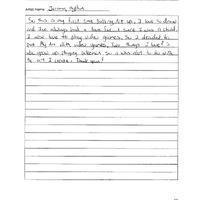 Artist Name Jeremy
So this is my first time submitting art up, I love to draw
and I've always had a love for it since I was a child.
I also love to play video games, so I decided to
put my art with video games, two things I love! I
also grew up playing pokemon so I was able to do with
the art I create. Thank you!